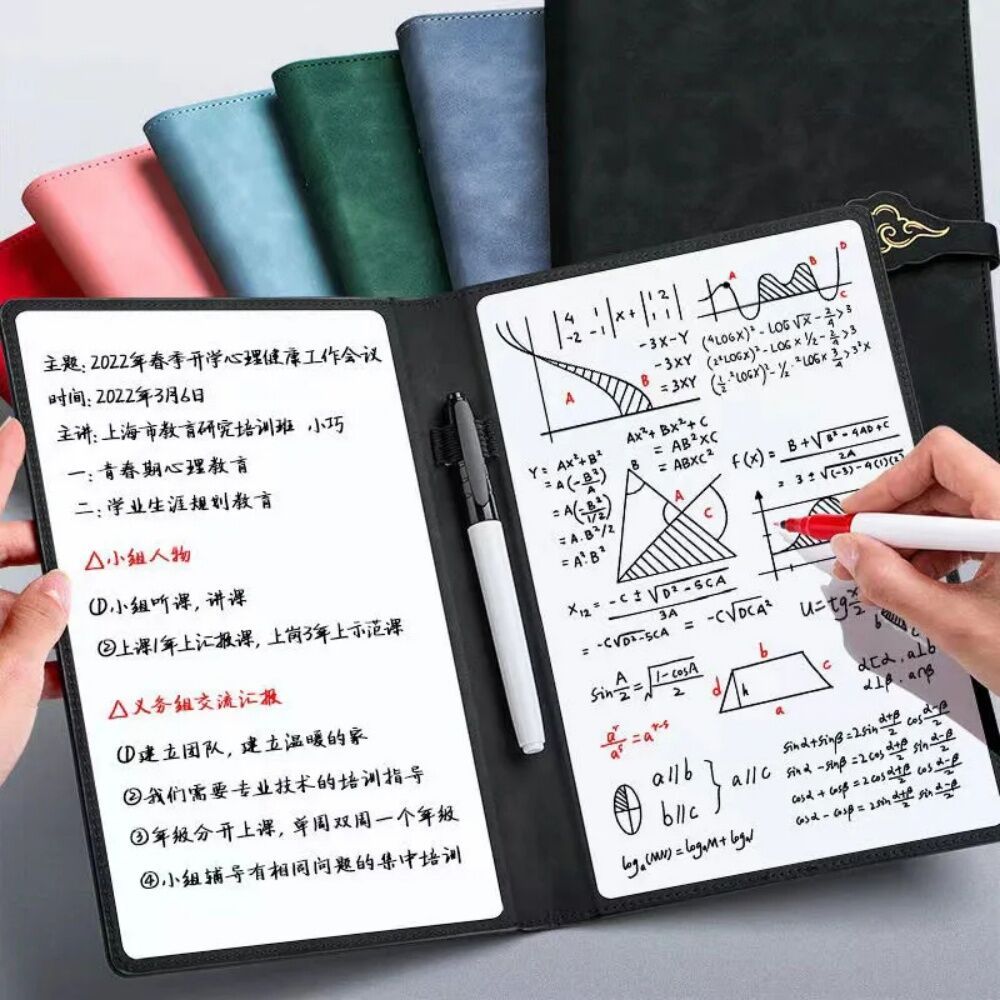 主题:2022年春季开学心理健康工作会议
时间:2022年3月6日
主讲:上海市教育研究培训班 小巧
一:青春期心理教育
二:学业生涯规划教育
△小组人物
①小组听课,讲课
②上课1年上汇报课,上岗3年上示范课
△义务组交流汇报
①建立团队,建立温暖的家
②我们需要专业技术的培训指导
③年级分开上课,单周双周一个年级
④小组辅导有相同问题的集中培训
|4 1| x + |1 2|
|-2 -1| |1 1|
-3X-Y
-3XY
=3XY
A
B
A
B
C
D
(4LOGX)²-LOG√X-2/4>3
(2²LOGX)²-LOGX½-2/4>3
AX²+BX²+C
=AB²XC
=ABXC²
Y=AX²+B²
=A(-B²/A)
=A(-B²/1/2)
=A.B²/2
=A².B²
B
A
C
f(X)=B+√B²-4AD+C/2A
=3±√(-3)-4(1)(2)
X₁₂=-C±√D²-5CA/3A
=-C√D²-5CA=-C√DCA²
U=tg x/2
sin A/2=√1-cosA/2
b
d
h
c
a
α⊥β.a∩β
aʳ/aˢ=aʳ⁻ˢ
a//b
b//c
} a//c
sinα+sinβ=2sin α+β/2 cos α-β/2
sinα-sinβ=2cos α+β/2 sin α-β/2
cosα+cosβ=2cos α+β/2 cos α-β/2
cosα-cosβ=2sin α+β/2 sin α-β/2
logₐ(MN)=logₐM+logₐN